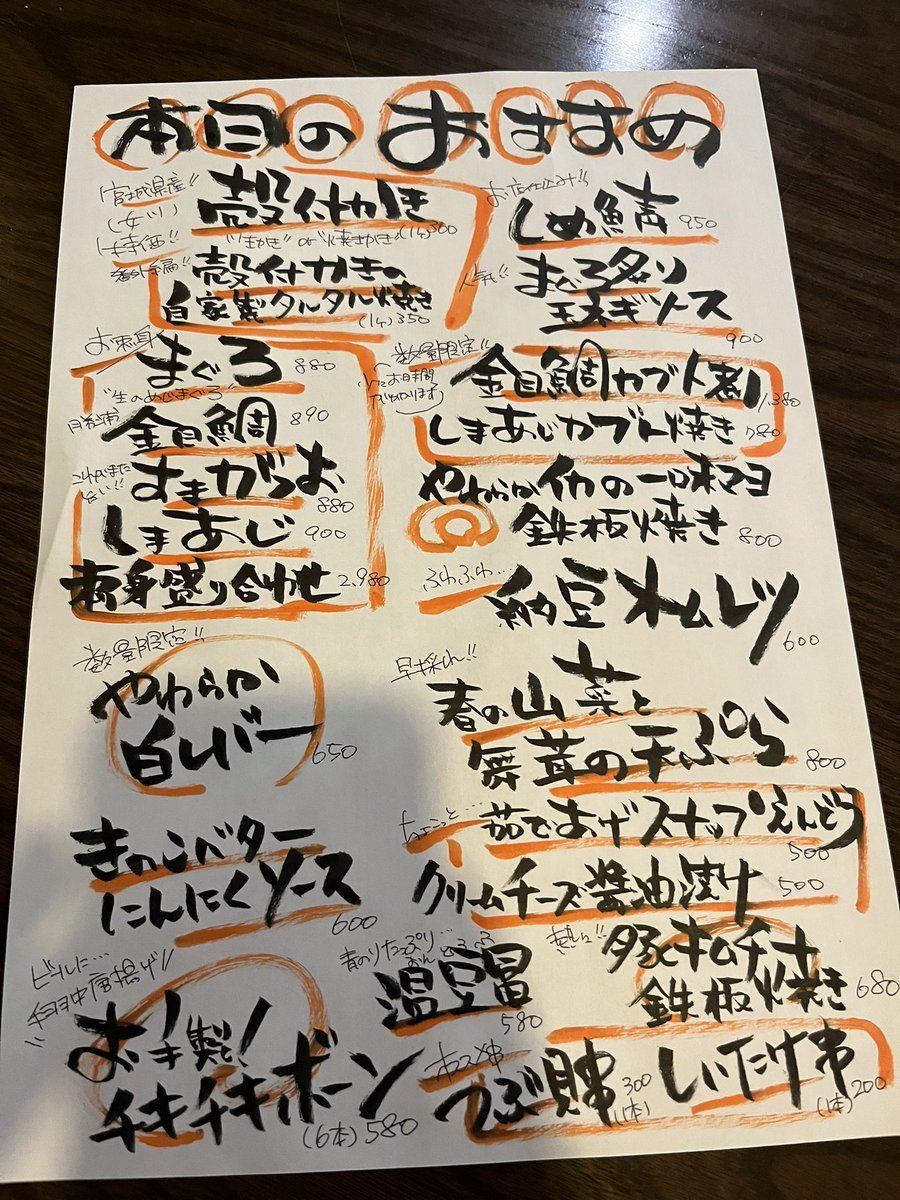 本日のおすすめ
宮城県産!!
(女川)
殻付かき
"生かき" or "焼きかき" (1ヶ)300
殻付かきの
自家製タルタル焼き
(1ヶ)350
お刺身
まぐろ 880
"生のめじまぐろ"
金目鯛 890
すまがつお
880
しまあじ 900
刺身盛り合わせ 2,980
数量限定!!
やわらか
白レバー 650
きのこバター
にんにくソース
600
ビールに…
手羽中唐揚げ!!
お手製!
チキチキボーン
(6本) 580
お店仕込み!!
しめ鯖 950
人気!!
まぐろ炙り
玉ネギソース
900
数量限定!!
お時間
かかります
金目鯛カブト煮
1,380
しまあじカブト焼き 780
やわらかイカの一味マヨ
鉄板焼き 800
ふわふわ…
納豆オムレツ
600
早採れ!!
春の山菜と
舞茸の天ぷら 800
ちょこっと…
茹であげスナップえんどう
500
クリームチーズ醤油漬け 500
青のりたっぷり…
おんどうふ
温豆冨
580
豚とキムチ
鉄板焼き 680
オススメ串
つぶ貝串 300
(1本)
しいたけ串
(1本) 200